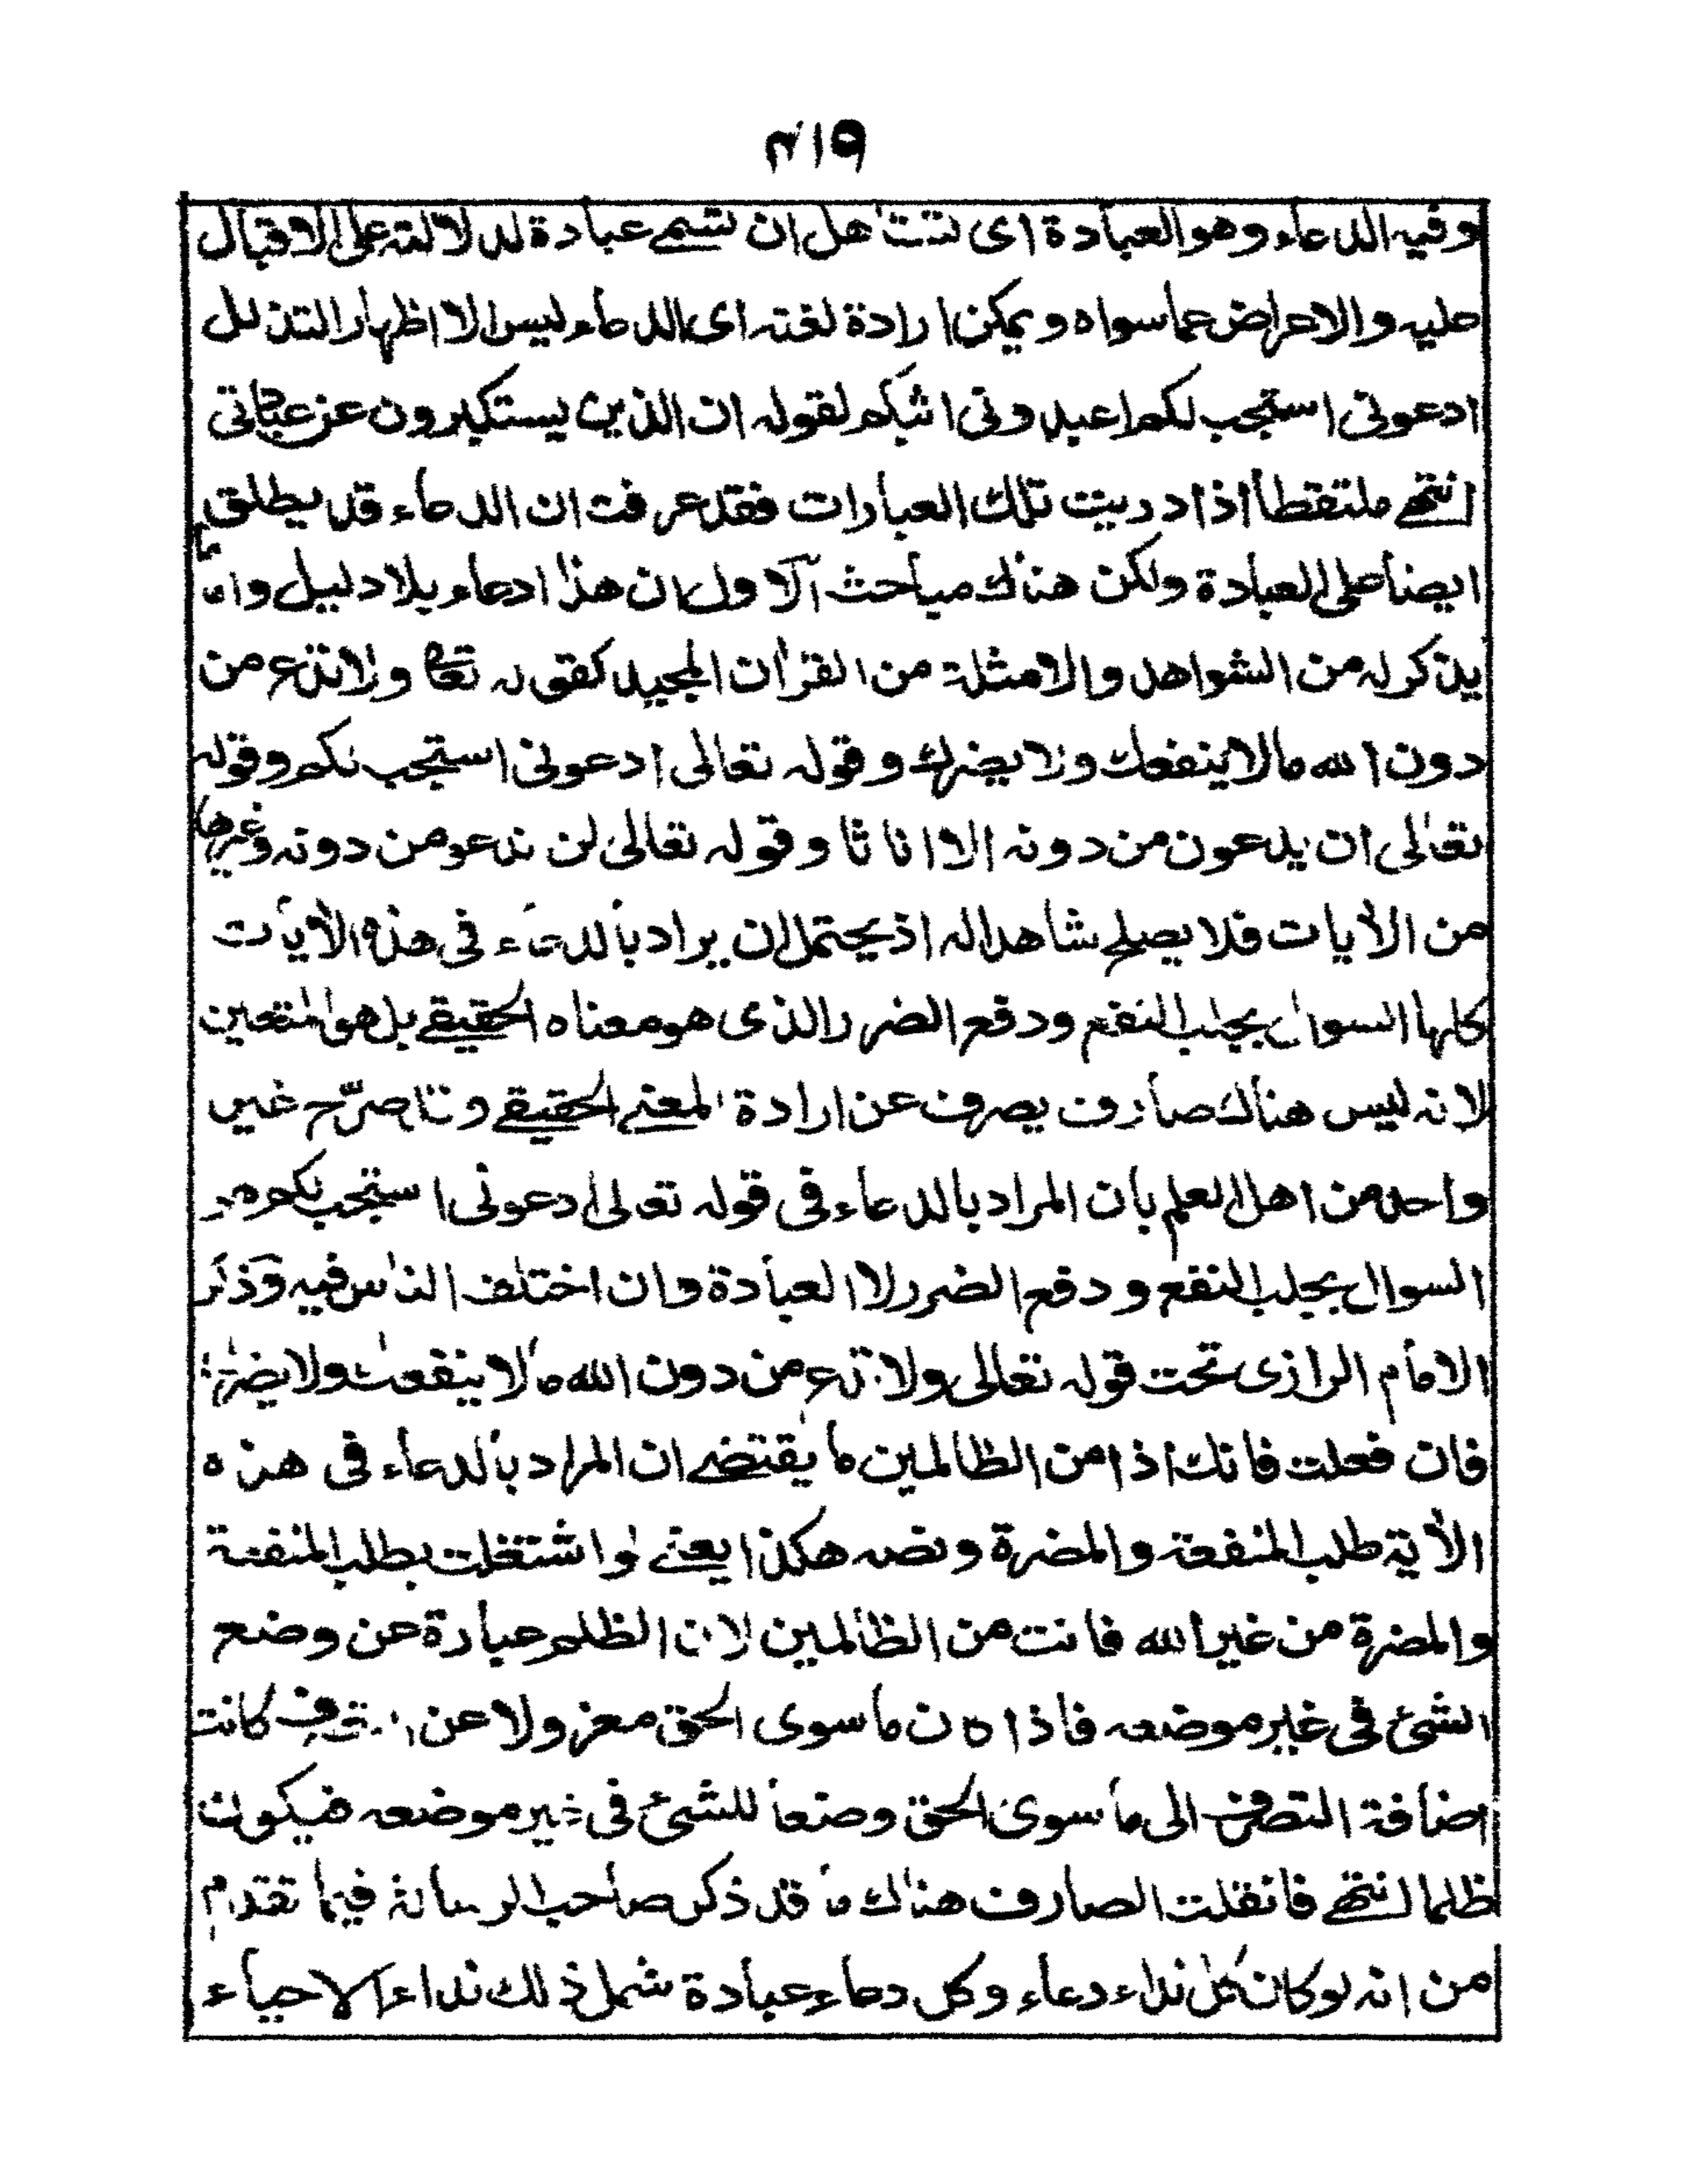 ٣١٩
وفيه الدعاء وهو العبادة اى تستاهل ان تسمے عبادة لدلالته على الاقبال
عليه والاعراض عما سواه ويمكن ارادة لغته اى الدعاء ليس الا اظهار التذلل
ادعونى استجب لكم اعبدونى اثبكم لقوله ان الذين يستكبرون عن عبادتى
انتهے ملتقطا اذا دريت تلك العبارات فقد عرفت ان الدعاء قد يطلق
ايضا على العبادة ولكن هناك مباحث الاول ان هذا ادعاء بلا دليل واما ما
يذكر له من الشواهد والامثلة من القرأن المجيد كقوله تعا ولا تدع من
دون الله ما لا ينفعك ولا يضرك وقوله تعالى ادعونى استجب لكم وقوله
تعالى ان يدعون من دونه الا اناثا وقوله تعالى لن ندعو من دونه وغيرها
من الأيات فلا يصلح شاهدا له اذ يحتمل ان يراد بالدعاء فى هذه الأيات
كلها السوال بجلب النفع ودفع الضرر الذى هو معناه الحقيقے بل هو المتعين
لانه ليس هناك صارف يصرف عن ارادة المعنے الحقيقے و صرّح غير
واحد من اهل العلم بان المراد بالدعاء فى قوله تعالى ادعونى استجب لكم هو
السوال بجلب النفع ودفع الضرر لا العبادة وان اختلف الناس فيه وذكر
الامام الرازى تحت قوله تعالى ولا تدع من دون الله ما لا ينفعك ولا يضرك
فان فعلت فانك اذا من الظالمين ما يقتضے ان المراد بالدعاء فى هذه
الأية طلب المنفعة والمضرة ونصه هكذا يعنے لو اشتغلت بطلب المنفعة
والمضرة من غير الله فانت من الظالمين لان الظلم عبارة عن وضع
الشئ فى غير موضعه فاذا كان ما سوى الحق معزولا عن التصرف كانت
اضافة التصرف الى ما سوى الحق وضعا للشئ فى غير موضعه فيكون
ظلما انتهے فان قلت الصارف هناك ما قد ذكر صاحب الرسالة فيما تقدم
من انه لو كان كل نداء دعاء وكل دعاء عبادة شمل ذلك نداء الاحياء